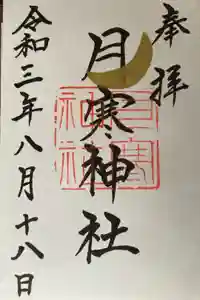 奉拝
月寒神社
令和三年八月十八日